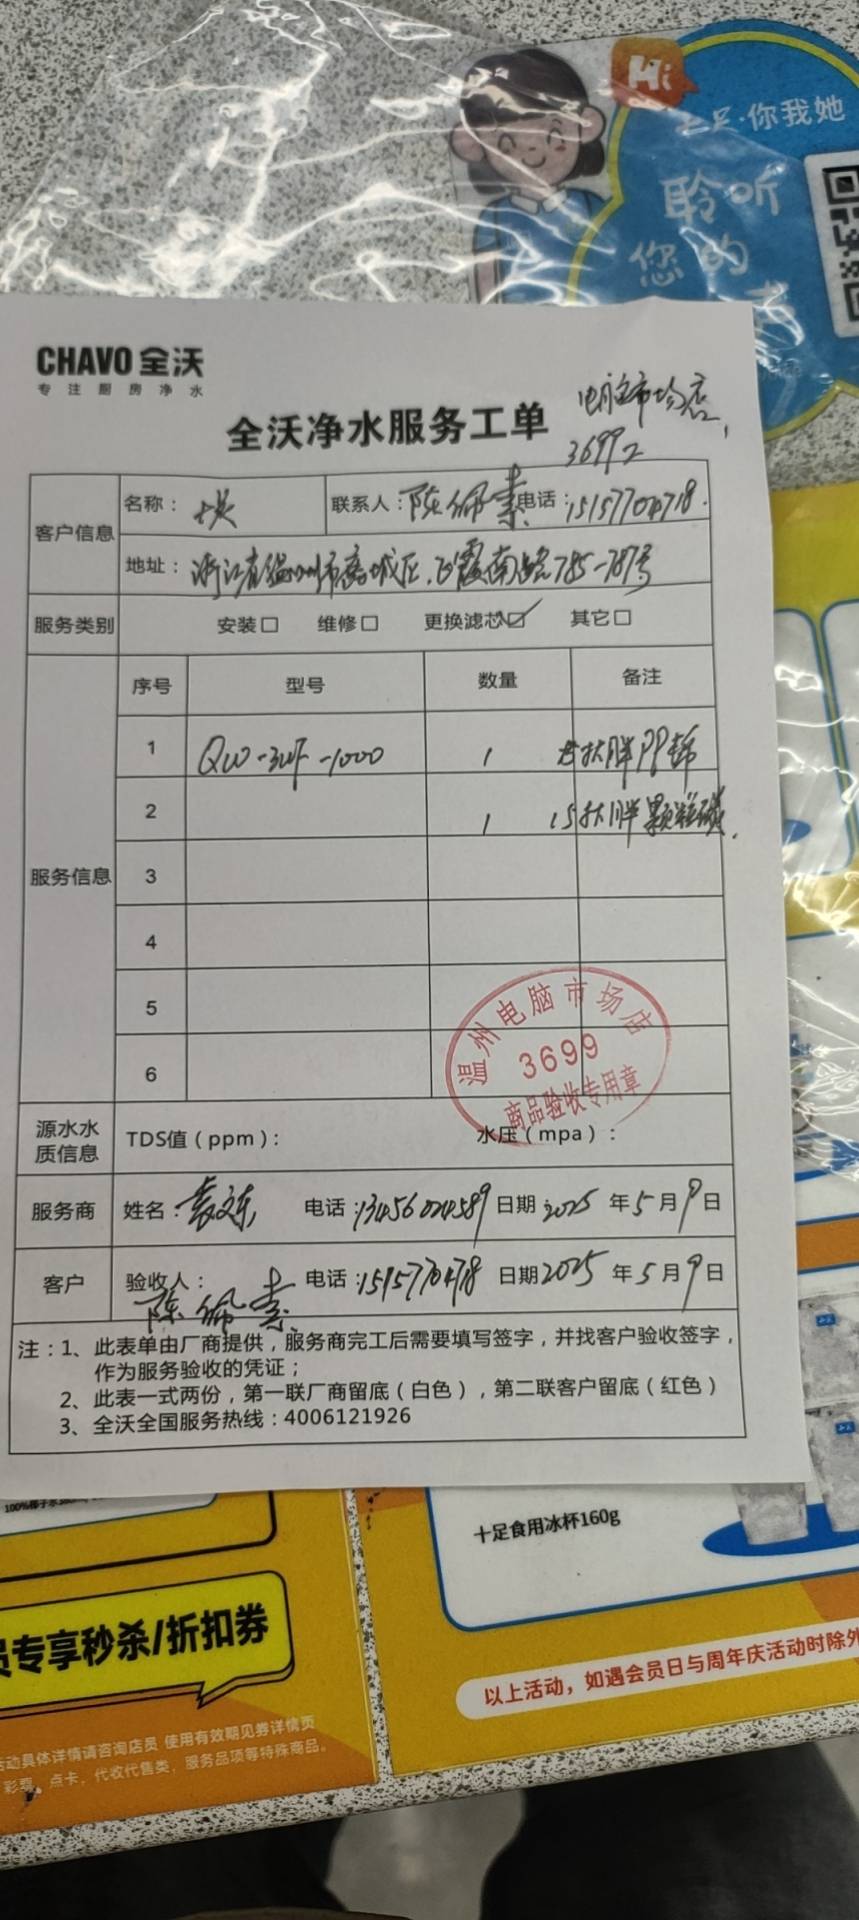 Hi
十足·你我她
聆听
您的
CHAVO 全沃
专注厨房净水
电脑市场店
全沃净水服务工单
客户信息
名称：
联系人：陈佩素 电话：
地址：浙江省温州市鹿城区飞霞南路785-787号
服务类别 安装 维修 更换滤芯 其它
服务信息
序号 型号 数量 备注
1 QW-3UF-1000 1 大胖PP棉
2 1 15寸大胖颗粒碳
3
4
5
6
温州电脑市场店
3699
商品验收专用章
源水水质信息 TDS值（ppm）： 水压（mpa）：
服务商 姓名：袁文东 电话：13456024589 日期：2025年5月9日
客户 验收人：陈佩素 电话：15157704718 日期2025年5月9日
注：1、此表单由厂商提供，服务商完工后需要填写签字，并找客户验收签字，
作为服务验收的凭证；
2、此表一式两份，第一联厂商留底（白色），第二联客户留底（红色）
3、全沃全国服务热线：4006121926
十足食用冰杯160g
员专享秒杀/折扣券
以上活动，如遇会员日与周年庆活动时除外
活动具体详情请咨询店员 使用有效期见券详情页
彩票、点卡，代收代售类，服务品项等特殊商品。